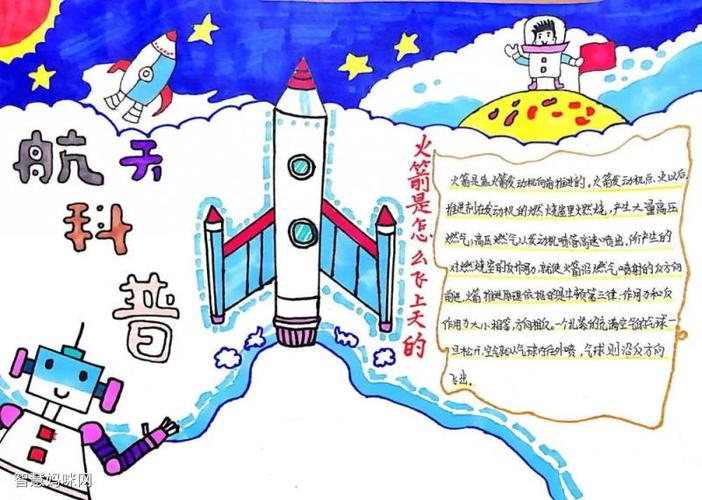 航天
科
普
火箭是怎么飞上天的
火箭是靠火箭发动机向前推进的。火箭发动机点火以后,
推进剂在发动机的燃烧室里燃烧,产生大量高压
燃气;高压燃气从发动机喷管高速喷出,所产生的
对燃烧室的反作用力,就使火箭沿燃气喷射的反方向
前进。火箭推进原理依据的是牛顿第三律:作用力和反
作用力大小相等,方向相反。一个扎紧的充满空气的气球一
旦松开,空气就从气球内往外喷,气球则沿反方向
飞出。
智慧妈咪网